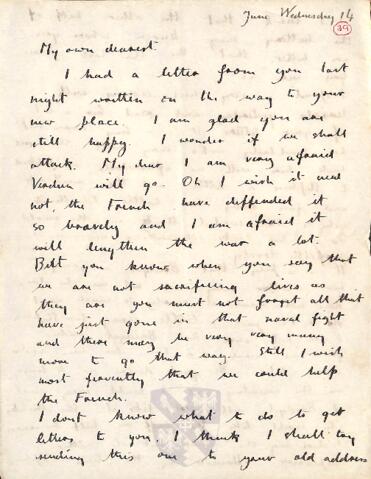 June Wednesday 14
39
My own dearest
I had a letter from you last
night written on the way to your
new place. I am glad you are
still happy. I wonder if we shall
attack. My dear I am very afraid
Verdun will go. Oh I wish it need
not, the French have deffended it
so bravely and I am afraid it
will lengthen the war a lot.
But you know when you say that
we are not sacrificing lives as
they are you must not forget all that
have just gone in that naval fight
and there may be very very many
more to go that way. Still I wish
most fervently that we could help
the French.
I dont know what to do to get
letters to you. I think I shall try
sending this one to your old address